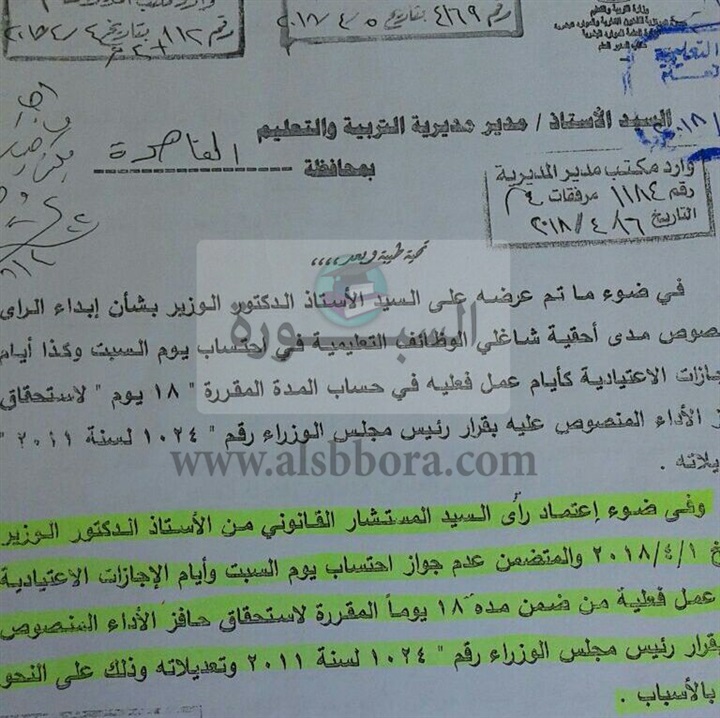 رقم ٤٦٩ بتاريخ ٥ / ٤ / ٢٠١٨
رقم ٨١٢ بتاريخ
التعليمية
السيد الأستاذ / مدير مديرية التربية والتعليم
بمحافظة القاهرة
وارد مكتب مدير المديرية
رقم ١١٨٤ مرفقات ٤
التاريخ ١٦ / ٤ / ٢٠١٨
تحية طيبة وبعد ،،،،
في ضوء ما تم عرضه على السيد الأستاذ الدكتور الوزير بشأن إبداء الرأى
صوص مدى أحقية شاغلي الوظائف التعليمية في احتساب يوم السبت وكذا أيام
جازات الاعتيادية كأيام عمل فعليه في حساب المدة المقررة " ١٨ يوم " لاستحقاق
ز الأداء المنصوص عليه بقرار رئيس مجلس الوزراء رقم " ١٠٢٤ لسنة ٢٠١١ "
يلاته .
السبورة
www.alsbbora.com
وفى ضوء إعتماد رأى السيد المستشار القانوني من الأستاذ الدكتور الوزير
خ ٢٠١٨/٤/١ والمتضمن عدم جواز احتساب يوم السبت وأيام الإجازات الاعتيادية
عمل فعلية من ضمن مده ١٨ يوماً المقررة لاستحقاق حافز الأداء المنصوص
بقرار رئيس مجلس الوزراء رقم " ١٠٢٤ لسنة ٢٠١١ وتعديلاته وذلك على النحو
بالأسباب .